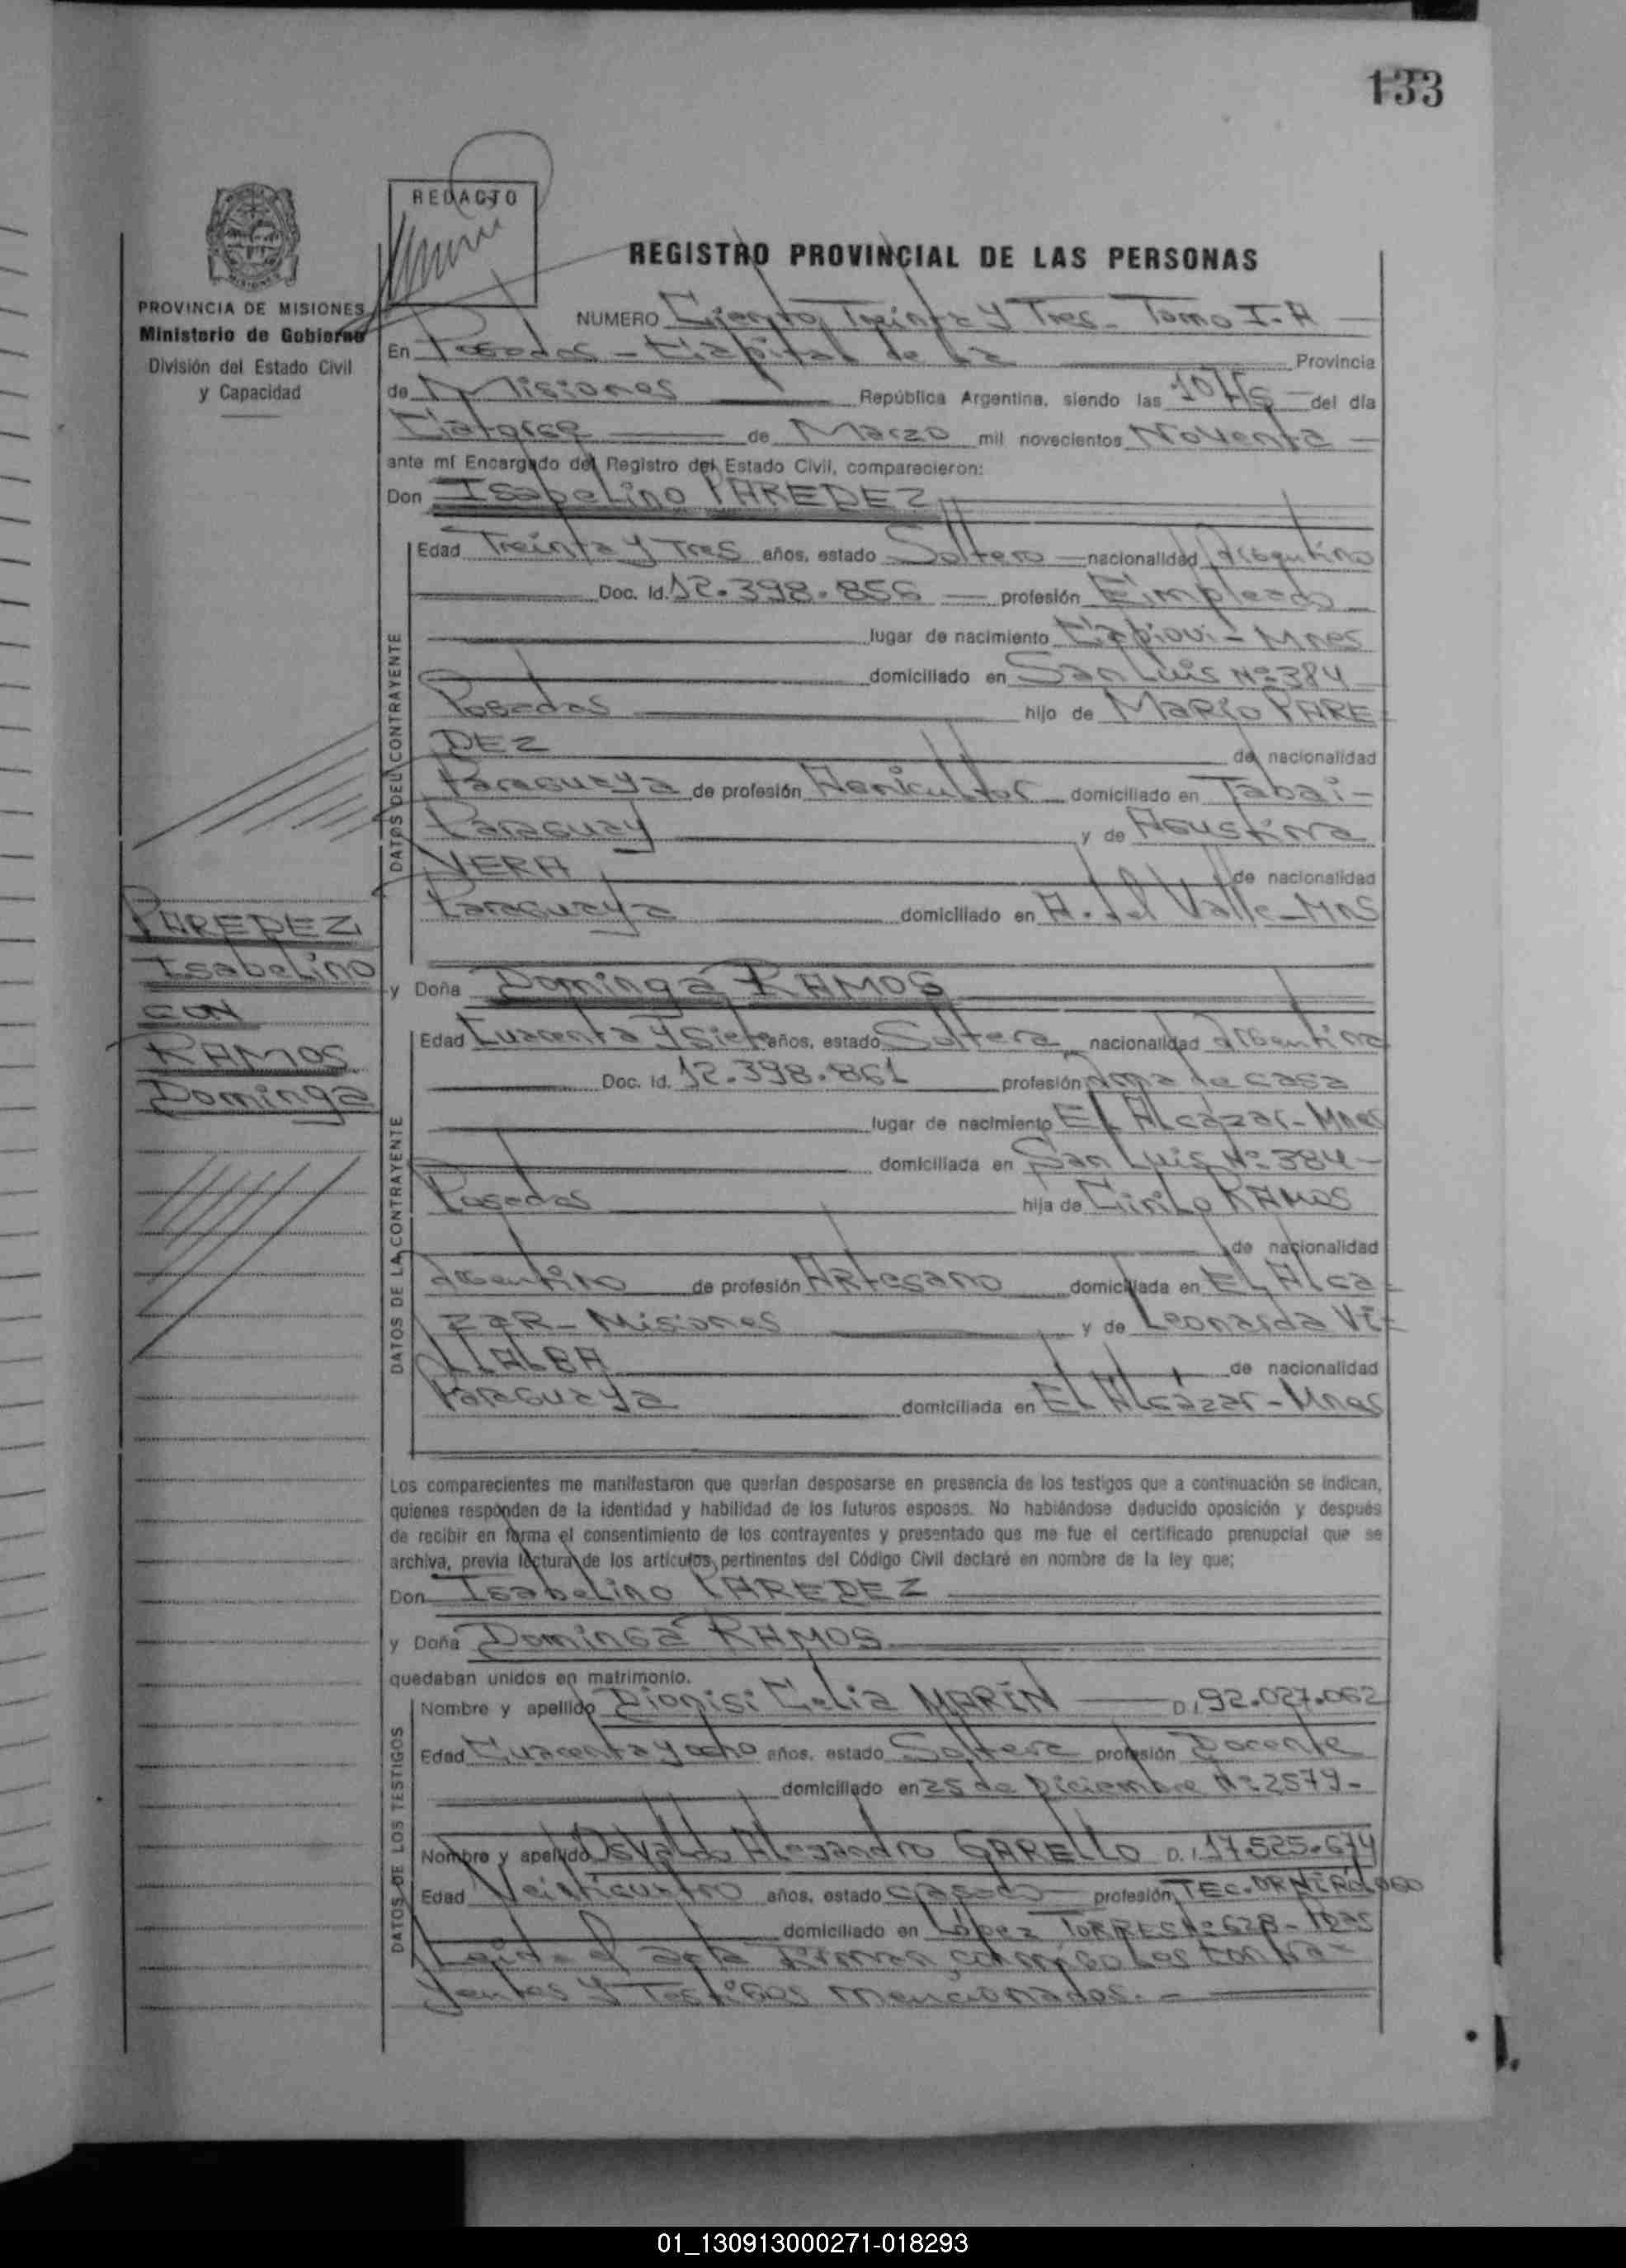 133
REDACTO
REGISTRO PROVINCIAL DE LAS PERSONAS
PROVINCIA DE MISIONES
Ministerio de Gobierno
División del Estado Civil
y Capacidad
NUMERO Ciento Treinta y Tres - Tomo I-A
En Posadas - Capital de la Provincia
de Misiones República Argentina, siendo las 10 Hs del día
Catorce de Marzo mil novecientos Noventa
ante mí Encargado del Registro del Estado Civil, comparecieron:
Don Isabelino PAREDEZ
DATOS DEL CONTRAYENTE
Edad Treinta y Tres años, estado Soltero nacionalidad Argentino
Doc. Id. 12.398.856 profesión Empleado
lugar de nacimiento Capiovi - Mnes
domiciliado en San Luis Nº 384
Posadas hijo de Mario PARE-
DEZ de nacionalidad
Paraguaya de profesión Agricultor domiciliado en Tabai -
Paraguay y de Agustina
VERA de nacionalidad
Paraguaya domiciliado en A. del Valle - Mns
PAREDEZ
Isabelino
CON
RAMOS
Dominga
y Doña Dominga RAMOS
DATOS DE LA CONTRAYENTE
Edad Cuarenta y Siete años, estado Soltera nacionalidad Argentina
Doc. Id. 12.398.861 profesión Ama de casa
lugar de nacimiento El Alcázar - Mnes
domiciliada en San Luis Nº 384 -
Posadas hija de Cirilo RAMOS
de nacionalidad
Argentino de profesión Artesano domiciliada en El Alca-
zar - Misiones y de Leonarda Vi-
LLALBA de nacionalidad
Paraguaya domiciliada en El Alcázar - Mnes
Los comparecientes me manifestaron que querían desposarse en presencia de los testigos que a continuación se indican,
quienes responden de la identidad y habilidad de los futuros esposos. No habiéndose deducido oposición y después
de recibir en forma el consentimiento de los contrayentes y presentado que me fue el certificado prenupcial que se
archiva, previa lectura de los artículos pertinentes del Código Civil declaré en nombre de la ley que;
Don Isabelino PAREDEZ
y Doña Dominga RAMOS
quedaban unidos en matrimonio.
DATOS DE LOS TESTIGOS
Nombre y apellido Dionisi Celia MARÍN D.I. 92.027.062
Edad Cuarenta y ocho años, estado Soltera profesión Docente
domiciliado en 25 de Diciembre Nº 2579 -
Nombre y apellido Osvaldo Alejandro GARELLO D.I. 17.525.674
Edad Veinticuatro años, estado casado profesión TEC.
domiciliado en López TORRES Nº 628 - Pdas
Leida el acta firman conmigo los contra-
yentes y Testigos mencionados. -
01_130913000271-018293